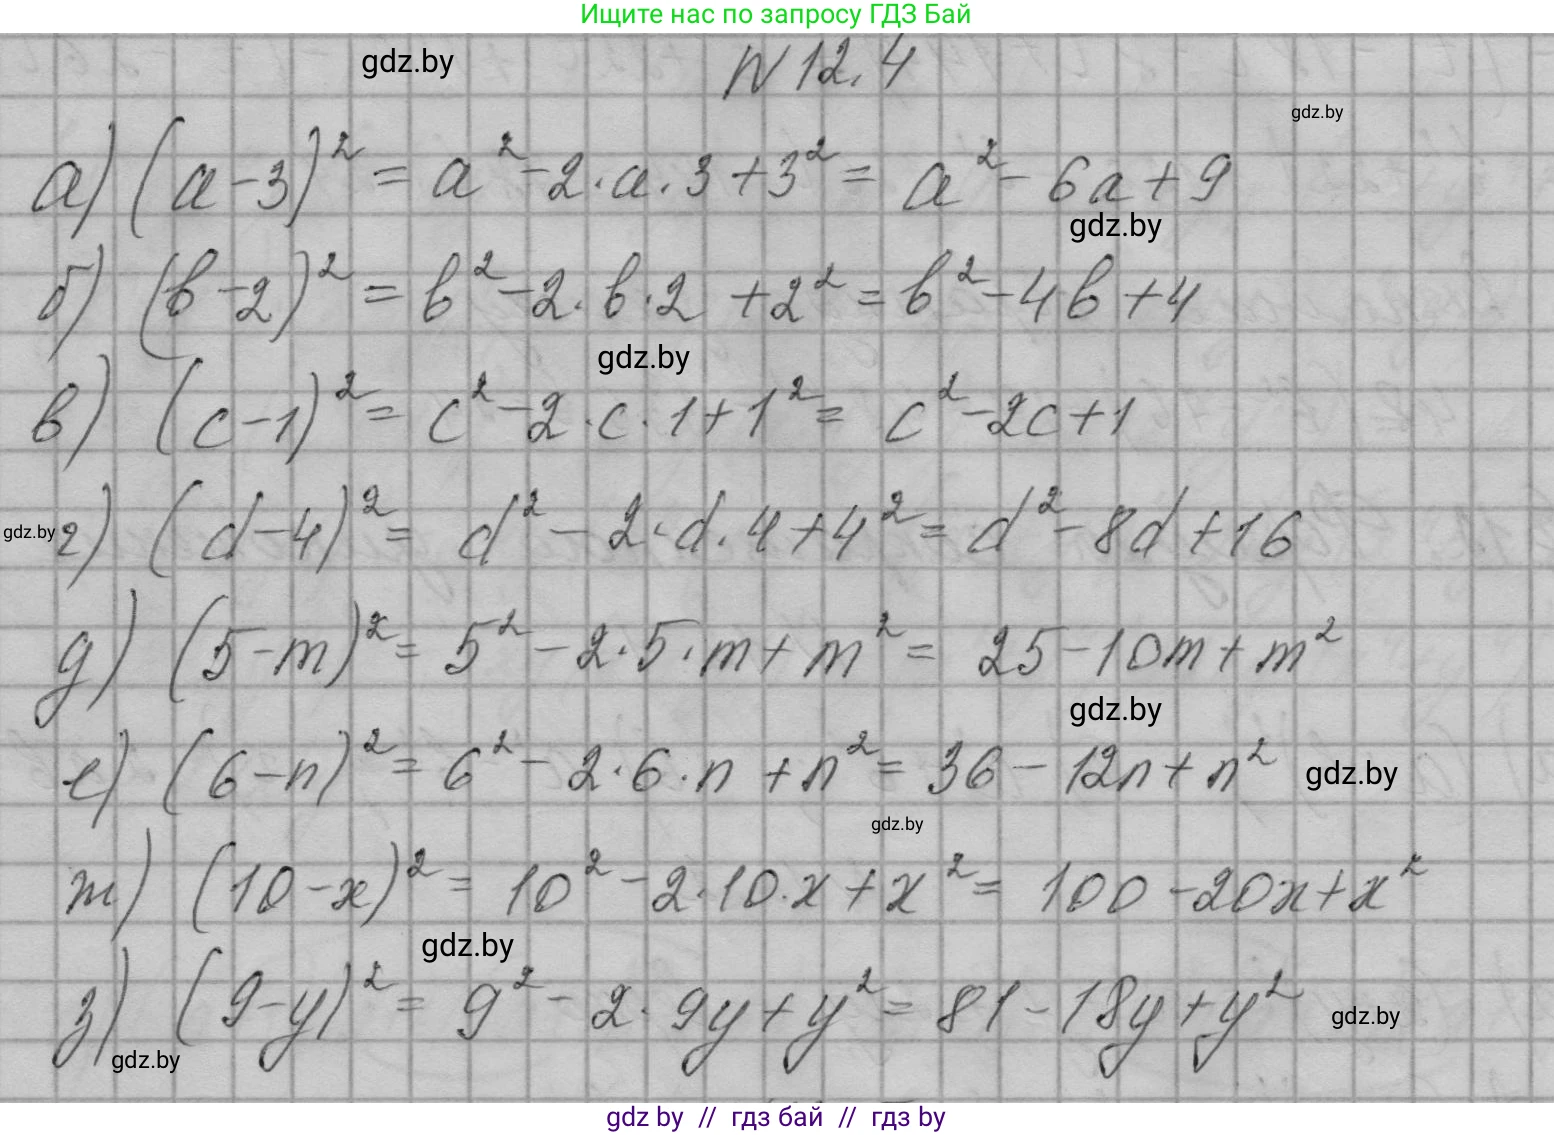 Ищите нас по запросу ГДЗ Бай
gdz.by
N 12.4
gdz.by
а) (a-3)² = a² - 2·a·3 + 3² = a² - 6a + 9
gdz.by
б) (b-2)² = b² - 2·b·2 + 2² = b² - 4b + 4
gdz.by
в) (c-1)² = c² - 2·c·1 + 1² = c² - 2c + 1
gdz.by
г) (d-4)² = d² - 2·d·4 + 4² = d² - 8d + 16
д) (5-m)² = 5² - 2·5·m + m² = 25 - 10m + m²
gdz.by
е) (6-n)² = 6² - 2·6·n + n² = 36 - 12n + n²
gdz.by
gdz.by
ж) (10-x)² = 10² - 2·10·x + x² = 100 - 20x + x²
gdz.by
з) (9-y)² = 9² - 2·9y + y² = 81 - 18y + y²
gdz.by
gdz.by
gdz by // гдз бай // гдз by